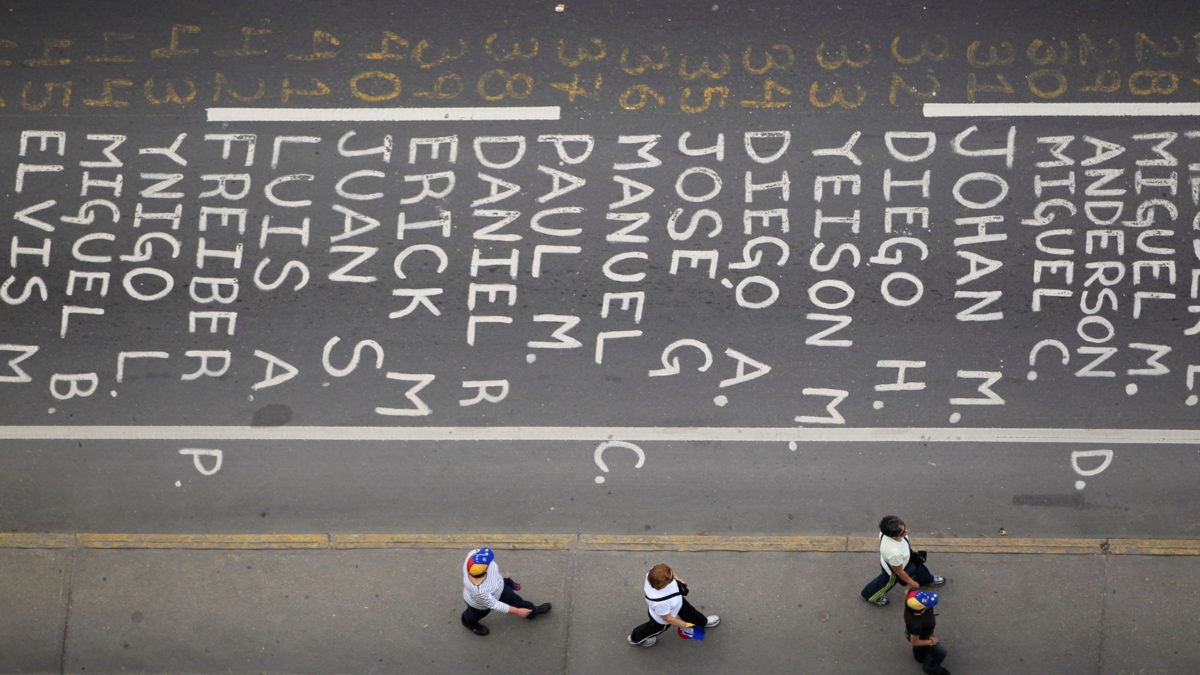 28 MIGUEL M.
29 ANDERSON D.
30 MIGUEL C.
31 JOHAN M.
32 DIEGO H.
33 YEISON M.
34 DIEGO A.
35 JOSE G.
36 MANUEL C.
37 PAUL M.
38 DANIEL R.
39 ERICK M.
40 JUAN S.
41 LUIS A.
42 FREIBER P.
43 YNIGO L.
44 MIGUEL B.
45 ELVIS M